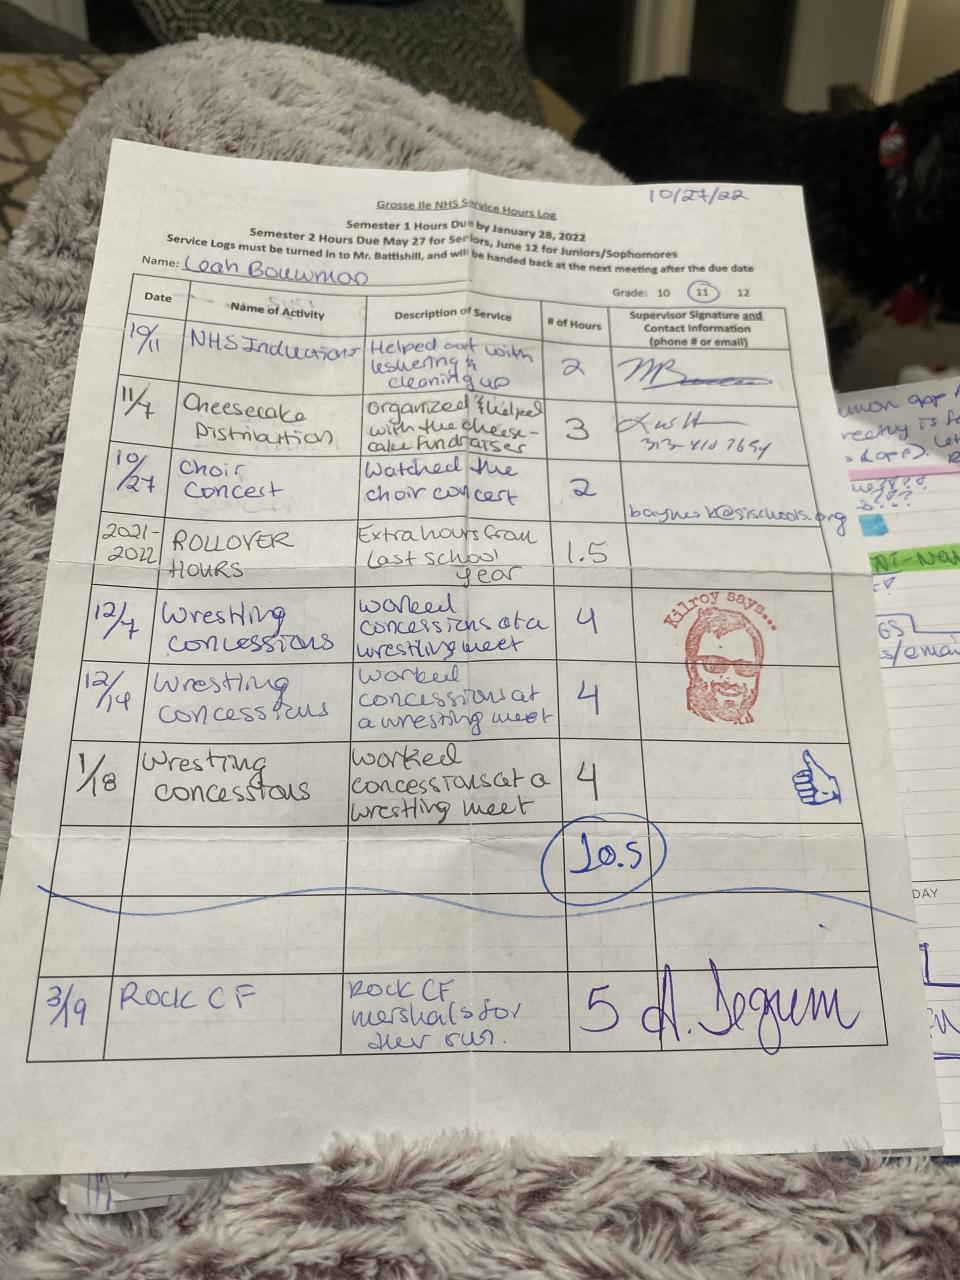 10/27/22
Grosse Ile NHS Service Hours Log
Semester 1 Hours Due by January 28, 2022
Semester 2 Hours Due May 27 for Seniors, June 12 for Juniors/Sophomores
Service Logs must be turned in to Mr. Battishill, and will be handed back at the next meeting after the due date
Name: Leah Bouwman
Grade: 10 11 12
Date
Name of Activity
Description of Service
# of Hours
Supervisor Signature and
Contact Information
(phone # or email)
10/11
NHS Inductions
Helped out with
ushering &
cleaning up
2
11/7
Cheesecake
Distribution
Organized & helped
with the cheese-
cake fundraiser
3
313 410 7654
10/27
Choir
Concert
Watched the
choir concert
2
2021-
2022
ROLLOVER
HOURS
Extra hours from
last school
year
1.5
12/7
Wrestling
concessions
Worked
concessions at a
wrestling meet
4
Kilroy says...
12/14
Wrestling
concessions
Worked
concessions at
a wresting meet
4
1/18
Wresting
concessions
Worked
concessions at a
wrestling meet
4
20.5
3/19
Rock CF
Rock CF
mershals for
their run.
5
A. Degum
DAY